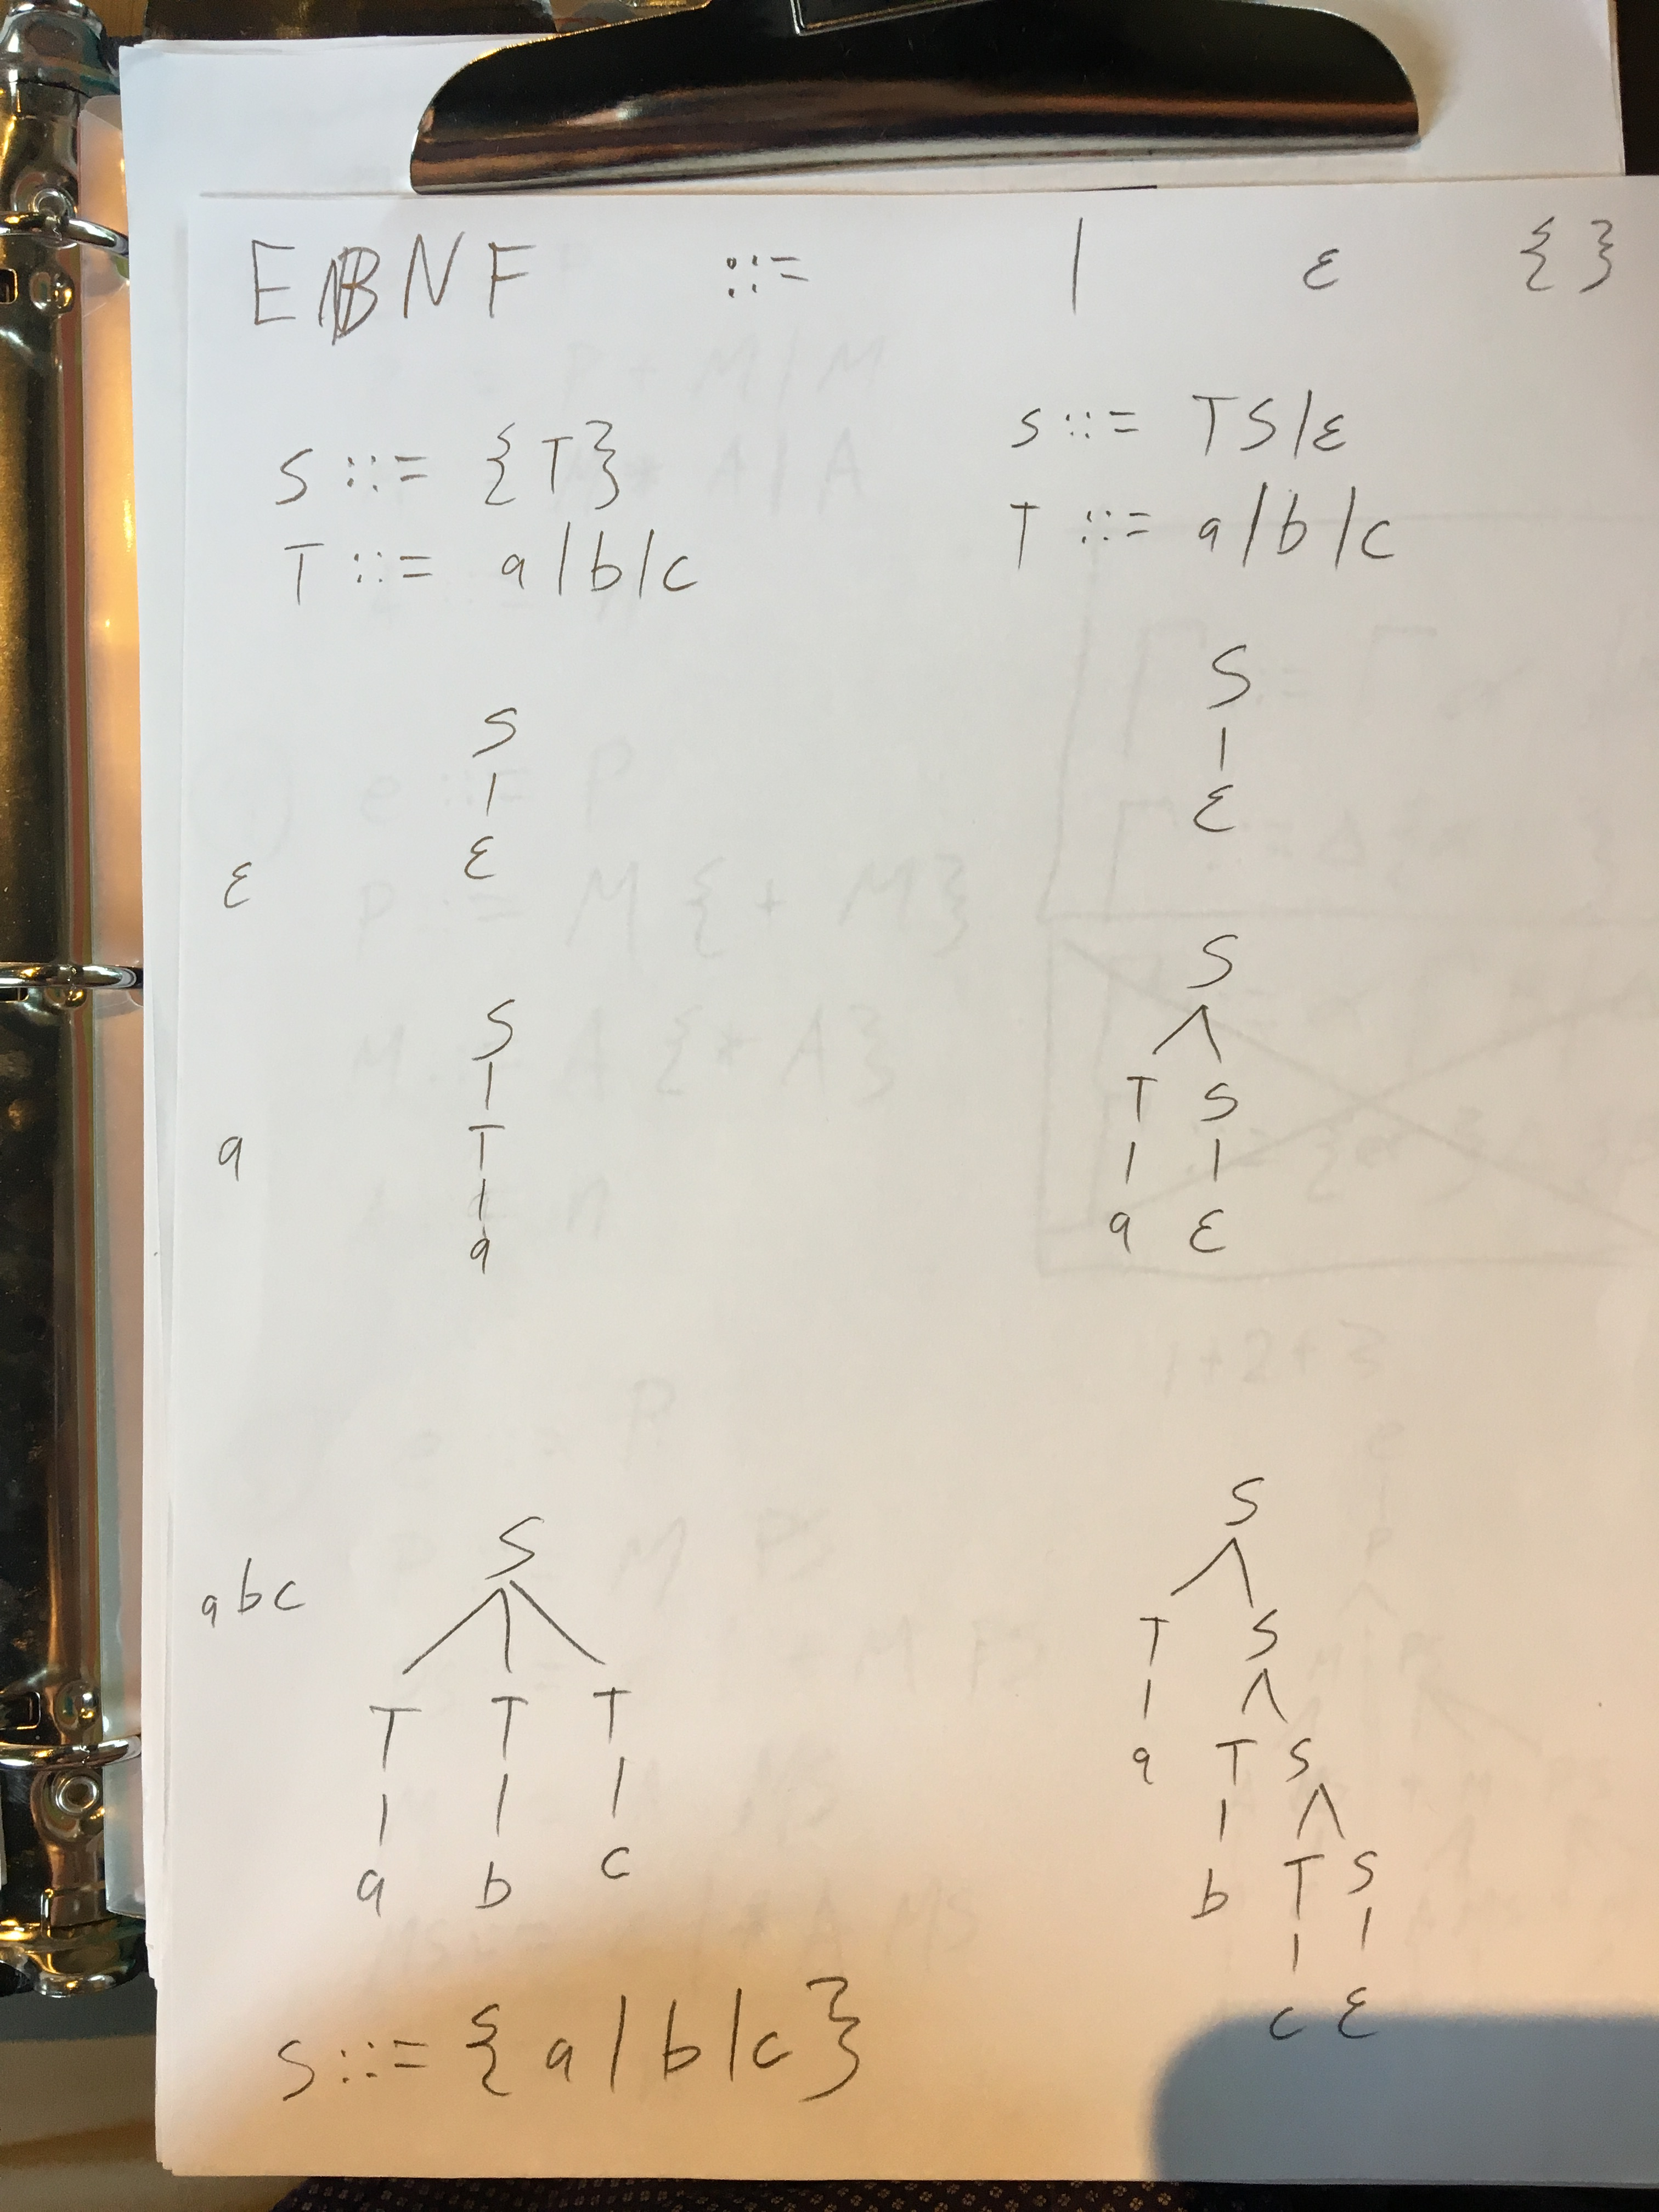 EBNF ::= | ε { }
S ::= {T}
T ::= a|b|c
S ::= TS|ε
T ::= a|b|c
ε
S
|
ε
S
|
ε
a
S
|
T
|
a
S
T S
| |
a ε
abc
S
T T T
| | |
a b c
S
T S
|
a T S
|
b T S
| |
c ε
S ::= {a|b|c}